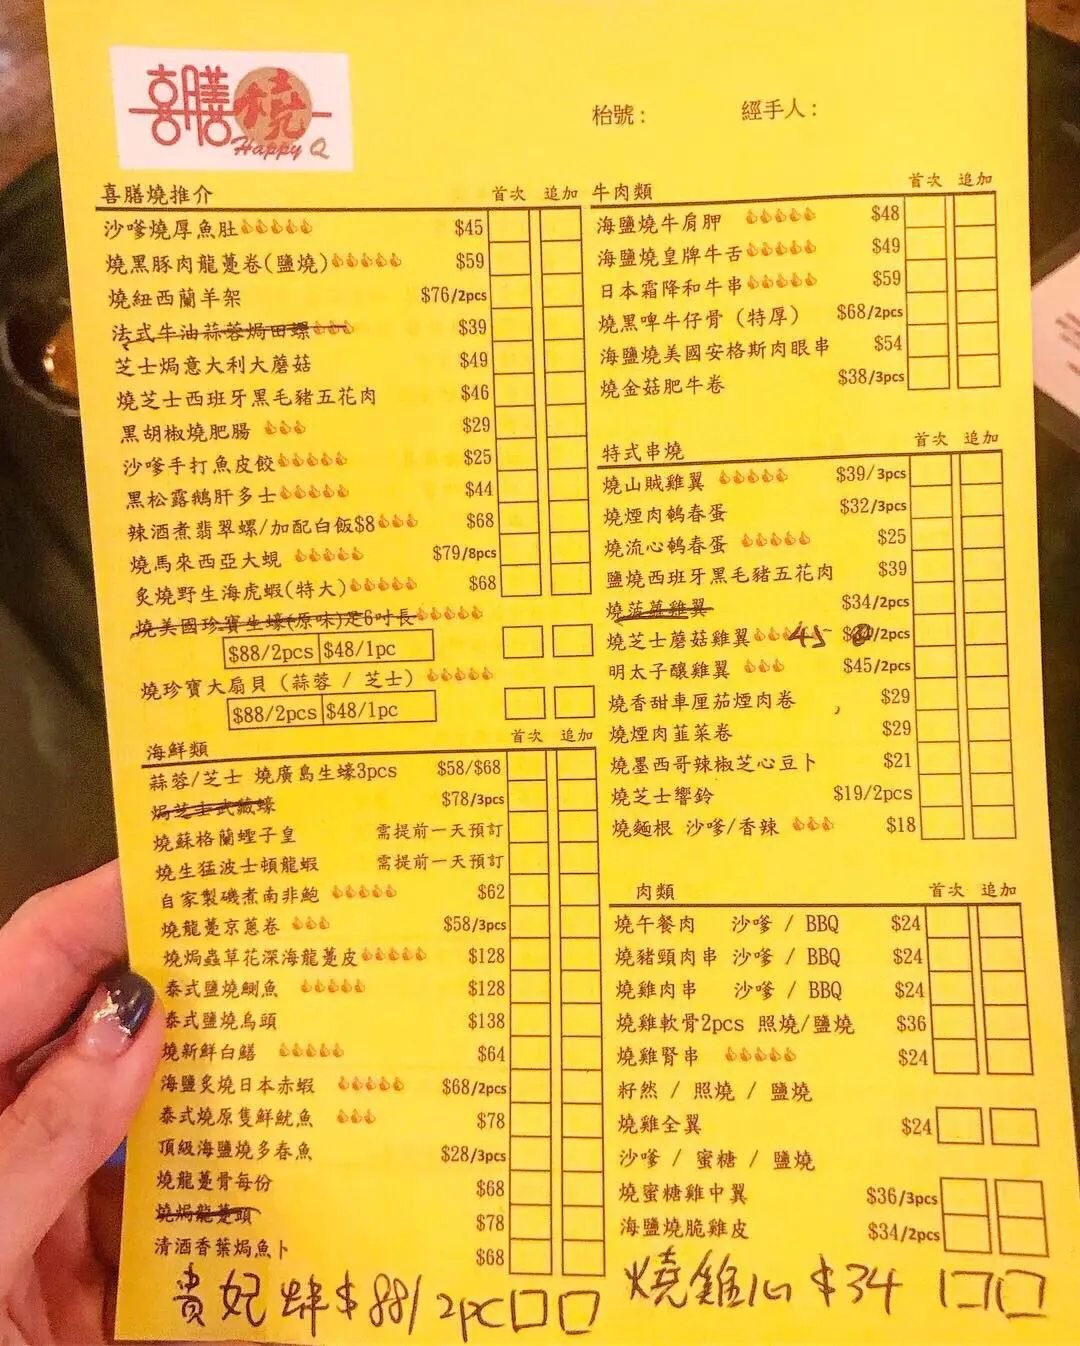 喜膳燒
Happy Q
枱號：
經手人：
喜膳燒推介 首次 追加
沙嗲燒厚魚肚 $45
燒黑豚肉龍躉卷(鹽燒) $59
燒紐西蘭羊架 $76/2pcs
法式牛油蒜蓉焗田螺 $39
芝士焗意大利大蘑菇 $49
燒芝士西班牙黑毛豬五花肉 $46
黑胡椒燒肥腸 $29
沙嗲手打魚皮餃 $25
黑松露鵝肝多士 $44
辣酒煮翡翠螺/加配白飯$8 $68
燒馬來西亞大蜆 $79/8pcs
炙燒野生海虎蝦(特大) $68
燒美國珍寶生蠔(原味)足6吋長
$88/2pcs $48/1pc
燒珍寶大扇貝 (蒜蓉 / 芝士)
$88/2pcs $48/1pc
海鮮類 首次 追加
蒜蓉/芝士 燒廣島生蠔3pcs $58/$68
焗芝士武藏蠔 $78/3pcs
燒蘇格蘭蟶子皇 需提前一天預訂
燒生猛波士頓龍蝦 需提前一天預訂
自家製磯煮南非鮑 $62
燒龍躉京蔥卷 $58/3pcs
燒焗蟲草花深海龍躉皮 $128
泰式鹽燒鰂魚 $128
泰式鹽燒烏頭 $138
燒新鮮白鱔 $64
海鹽炙燒日本赤蝦 $68/2pcs
泰式燒原隻鮮魷魚 $78
頂級海鹽燒多春魚 $28/3pcs
燒龍躉骨每份 $68
燒焗龍躉頭 $78
清酒香葉焗魚卜 $68
貴妃蚌 $88/2pc
牛肉類 首次 追加
海鹽燒牛肩胛 $48
海鹽燒皇牌牛舌 $49
日本霜降和牛串 $59
燒黑啤牛仔骨 (特厚) $68/2pcs
海鹽燒美國安格斯肉眼串 $54
燒金菇肥牛卷 $38/3pcs
特式串燒 首次 追加
燒山賊雞翼 $39/3pcs
燒煙肉鵪春蛋 $32/3pcs
燒流心鵪春蛋 $25
鹽燒西班牙黑毛豬五花肉 $39
燒菠蘿雞翼 $34/2pcs
燒芝士蘑菇雞翼 45 /2pcs
明太子釀雞翼 $45/2pcs
燒香甜車厘茄煙肉卷 $29
燒煙肉韮菜卷 $29
燒墨西哥辣椒芝心豆卜 $21
燒芝士響鈴 $19/2pcs
燒麵根 沙嗲/香辣 $18
肉類 首次 追加
燒午餐肉 沙嗲 / BBQ $24
燒豬頸肉串 沙嗲 / BBQ $24
燒雞肉串 沙嗲 / BBQ $24
燒雞軟骨2pcs 照燒/鹽燒 $36
燒雞腎串 $24
籽然 / 照燒 / 鹽燒
燒雞全翼 $24
沙嗲 / 蜜糖 / 鹽燒
燒蜜糖雞中翼 $36/3pcs
海鹽燒脆雞皮 $34/2pcs
燒雞心 $34